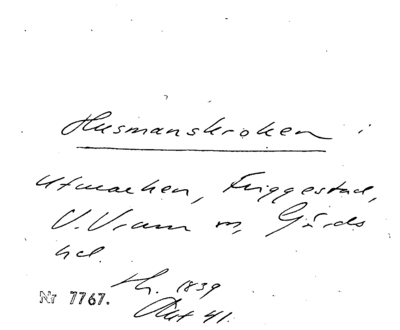 Husmanskroken i
Utmarken, Friggestad,
V. Vram sn, Gärds
hd.
Nr 7767.
1839
Akt 41.